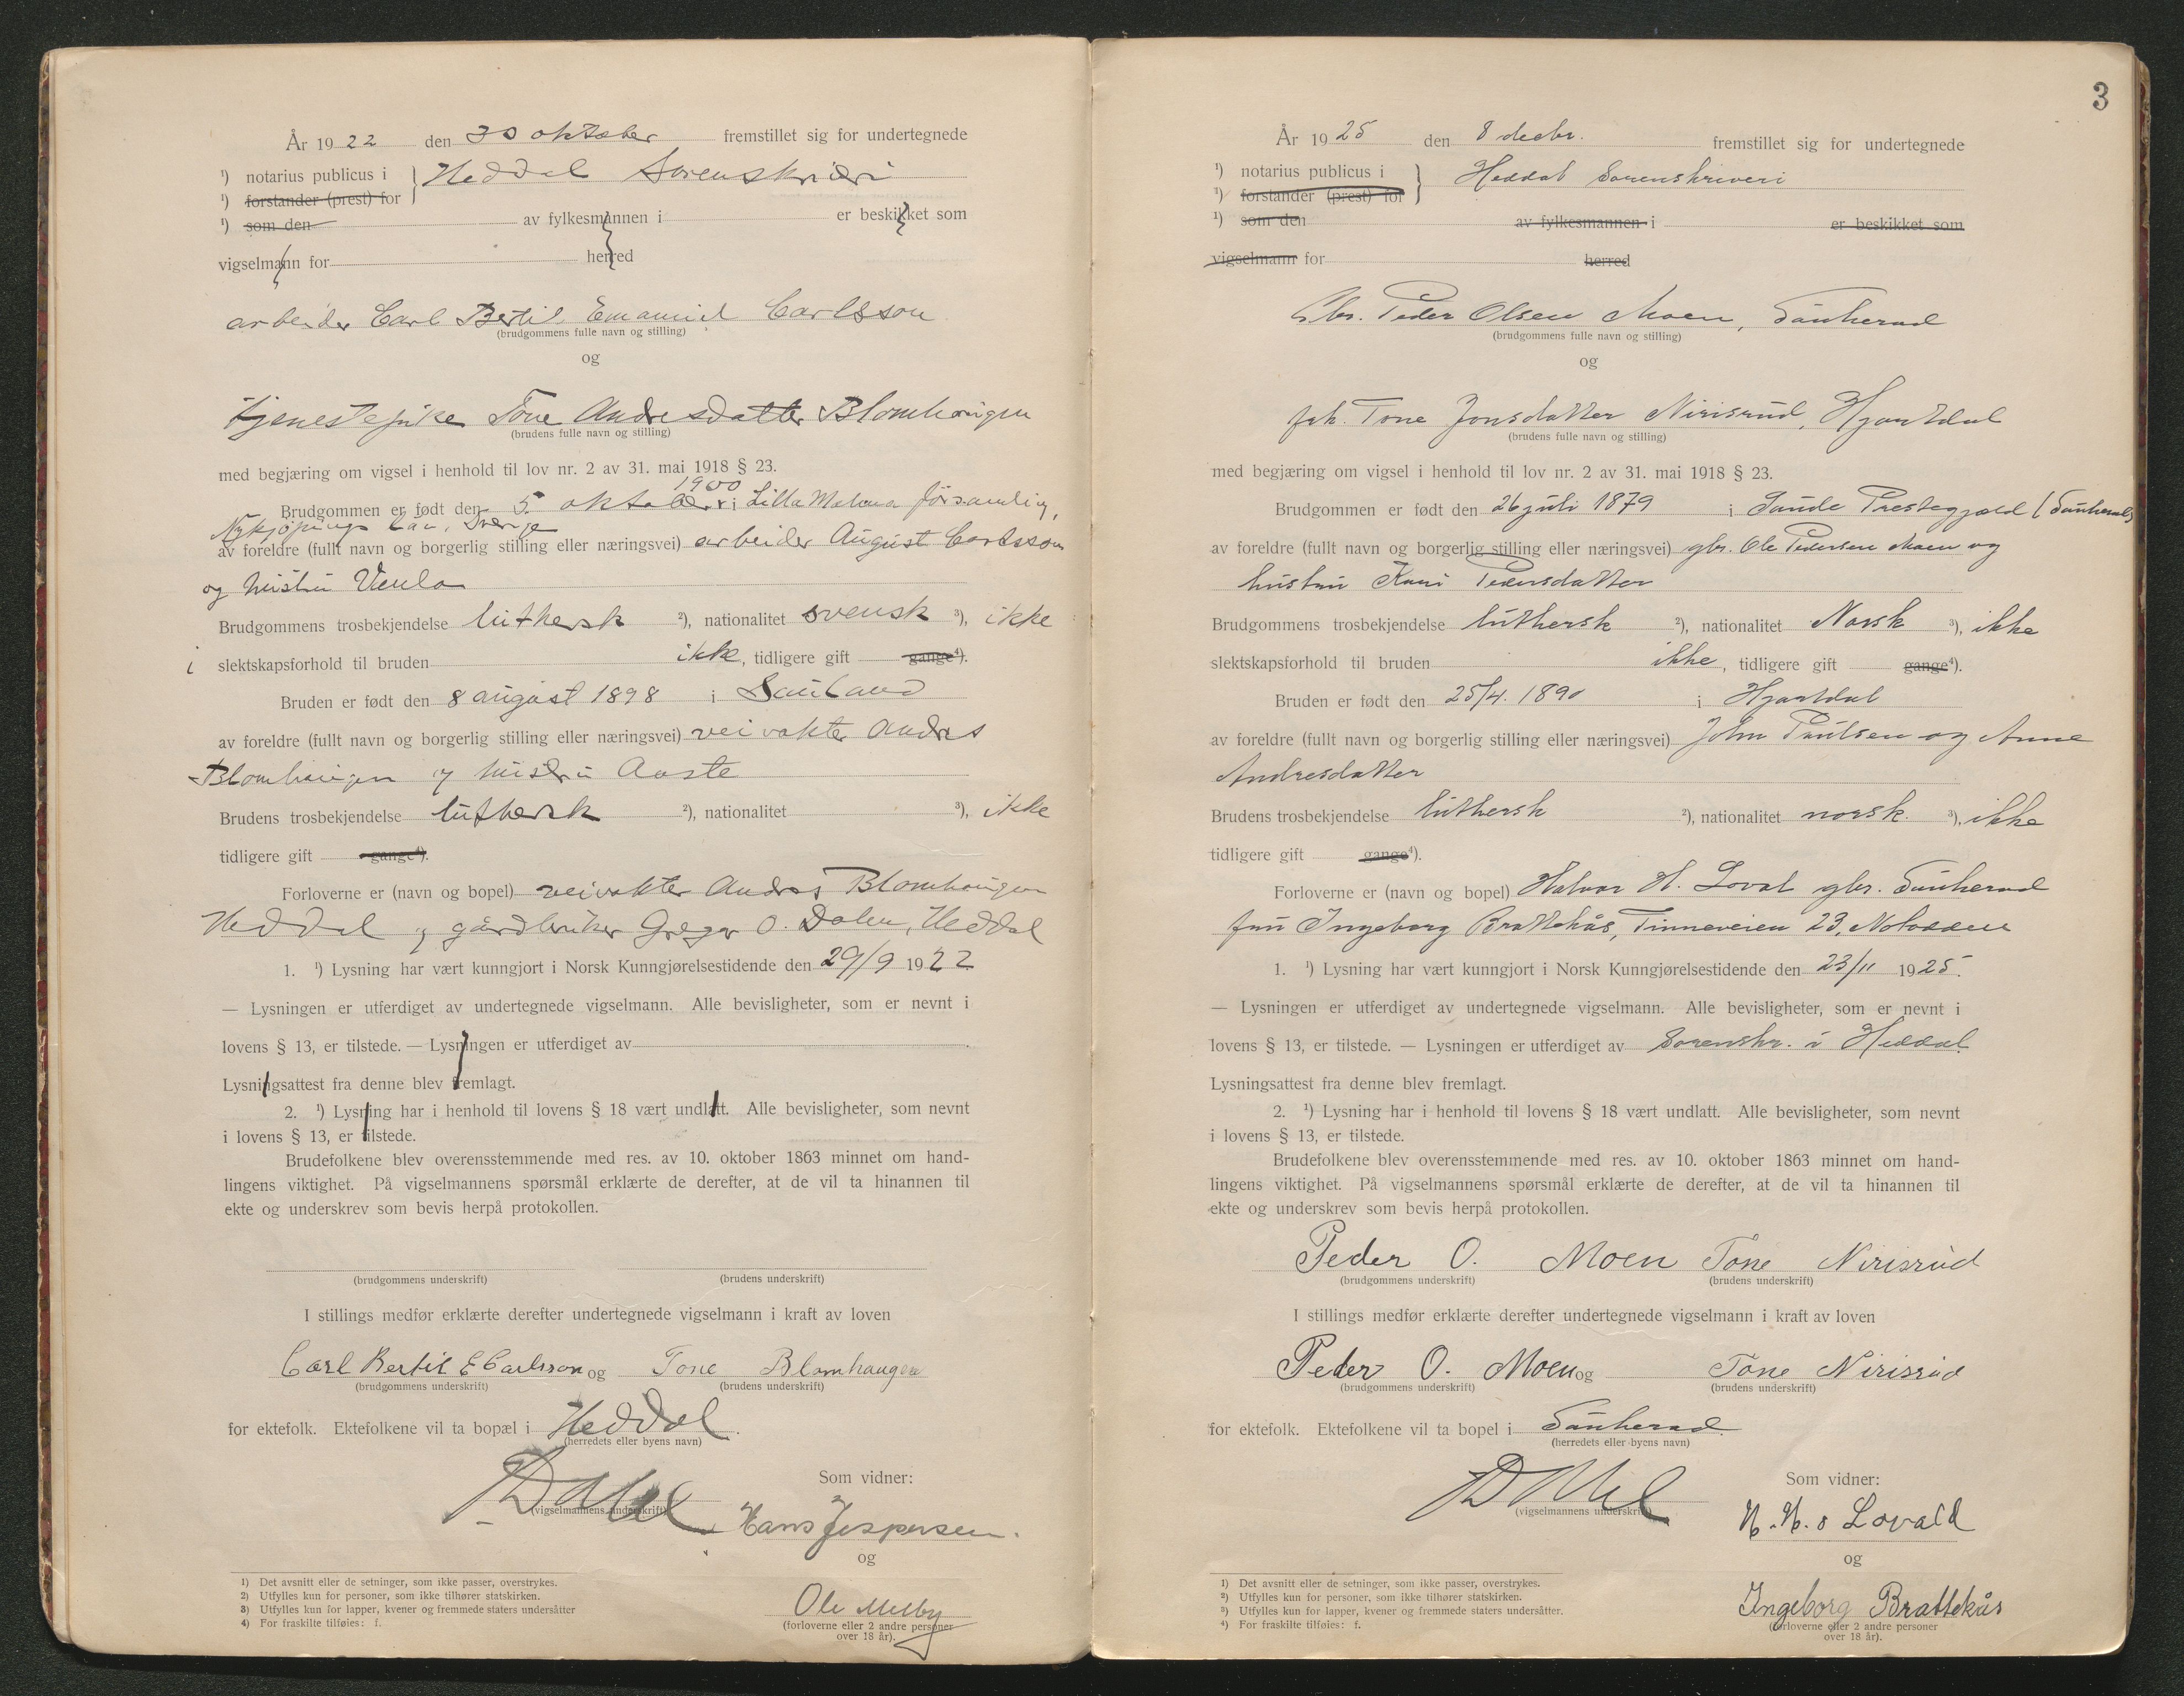 År 1922 den 30 oktober fremstillet sig for undertegnede
¹) notarius publicus i } Heddal Sorenskriveri
¹) forstander (prest) for
¹) som den av fylkesmannen i er beskikket som
vigselmann for herred
arbeider Carl Bertil Emanuel Carlsson
(brudgommens fulle navn og stilling)
og
tjenestepike Tone Andresdatter Blomhaugen
(brudens fulle navn og stilling)
med begjæring om vigsel i henhold til lov nr. 2 av 31. mai 1918 § 23.
1900
Brudgommen er født den 5. oktober i Lilla Malma församling,
Nykjöpings Län, Sverige
av foreldre (fullt navn og borgerlig stilling eller næringsvei) arbeider August Carlsson
og hustru
Brudgommens trosbekjendelse luthersk ²), nationalitet svensk ³), ikke
i slektskapsforhold til bruden ikke, tidligere gift gange⁴).
Bruden er født den 8 august 1898 i Sauland
av foreldre (fullt navn og borgerlig stilling eller næringsvei) veivokter Andres
Blomhaugen og hustru Aaste
Brudens trosbekjendelse luthersk ²), nationalitet ³), ikke
tidligere gift gange⁴).
Forloverne er (navn og bopel) veivokter Andres Blomhaugen
Heddal og gårdbruker Gregar O. Dalen, Heddal
1. ¹) Lysning har vært kunngjort i Norsk Kunngjørelsestidende den 29/9 1922
— Lysningen er utferdiget av undertegnede vigselmann. Alle bevisligheter, som er nevnt i
lovens § 13, er tilstede. — Lysningen er utferdiget av
Lysningsattest fra denne blev fremlagt.
2. ¹) Lysning har i henhold til lovens § 18 vært undlatt. Alle bevisligheter, som nevnt
i lovens § 13, er tilstede.
Brudefolkene blev overensstemmende med res. av 10. oktober 1863 minnet om hand-
lingens viktighet. På vigselmannens spørsmål erklærte de derefter, at de vil ta hinannen til
ekte og underskrev som bevis herpå protokollen.
(brudgommens underskrift) (brudens underskrift)
I stillings medfør erklærte derefter undertegnede vigselmann i kraft av loven
Carl Bertil E Carlsson og Tone Blomhaugen
(brudgommens underskrift) (brudens underskrift)
for ektefolk. Ektefolkene vil ta bopæl i Heddal.
(herredets eller byens navn)
Som vidner:
(vigselmannens underskrift)
Hans Jespersen.
og
Ole Melby
(forloverne eller 2 andre personer
over 18 år).
1) Det avsnitt eller de setninger, som ikke passer, overstrykes.
2) Utfylles kun for personer, som ikke tilhører statskirken.
3) Utfylles kun for lapper, kvener og fremmede staters undersåtter
4) For fraskilte tilføies: f.
3
År 1925 den 8 decbr. fremstillet sig for undertegnede
¹) notarius publicus i } Heddal Sorenskriveri
¹) forstander (prest) for
¹) som den av fylkesmannen i er beskikket som
vigselmann for herred
Gbr. Peder Olsen Moen, Sauherad
(brudgommens fulle navn og stilling)
og
frk. Tone Jonsdatter Nirisrud, Hjartdal
(brudens fulle navn og stilling)
med begjæring om vigsel i henhold til lov nr. 2 av 31. mai 1918 § 23.
Brudgommen er født den 26 juli 1879 i Saude Prestegjæld (Sauherad)
av foreldre (fullt navn og borgerlig stilling eller næringsvei) gbr. Ole Pedersen Moen og
hustru Kari Pedersdatter
Brudgommens trosbekjendelse luthersk ²), nationalitet Norsk ³), ikke
slektskapsforhold til bruden ikke, tidligere gift gange⁴).
Bruden er født den 25/4. 1890 i Hjartdal
av foreldre (fullt navn og borgerlig stilling eller næringsvei) John Paulsen og Anne
Andresdatter
Brudens trosbekjendelse luthersk ²), nationalitet norsk. ³), ikke
tidligere gift gange⁴).
Forloverne er (navn og bopel) Halvor H. Loval gbr. Sauherad
fru Ingeborg Brattekås, Tinneveien 23, Notodden
1. ¹) Lysning har vært kunngjort i Norsk Kunngjørelsestidende den 23/11 1925.
— Lysningen er utferdiget av undertegnede vigselmann. Alle bevisligheter, som er nevnt i
lovens § 13, er tilstede. — Lysningen er utferdiget av Sorenskr. i Heddal
Lysningsattest fra denne blev fremlagt.
2. ¹) Lysning har i henhold til lovens § 18 vært undlatt. Alle bevisligheter, som nevnt
i lovens § 13, er tilstede.
Brudefolkene blev overensstemmende med res. av 10. oktober 1863 minnet om hand-
lingens viktighet. På vigselmannens spørsmål erklærte de derefter, at de vil ta hinannen til
ekte og underskrev som bevis herpå protokollen.
Peder O. Moen Tone Nirisrud
(brudgommens underskrift) (brudens underskrift)
I stillings medfør erklærte derefter undertegnede vigselmann i kraft av loven
Peder O. Moen og Tone Nirisrud
(brudgommens underskrift) (brudens underskrift)
for ektefolk. Ektefolkene vil ta bopel i Sauherad.
(herredets eller byens navn)
Som vidner:
(vigselmannens underskrift)
H. H. s Lovald
og
Ingeborg Brattekås
(forloverne eller 2 andre personer
over 18 år).
1) Det avsnitt eller de setninger, som ikke passer, overstrykes.
2) Utfylles kun for personer, som ikke tilhører statskirken.
3) Utfylles kun for lapper, kvener og fremmede staters undersåtter.
4) For fraskilte tilføies: f.